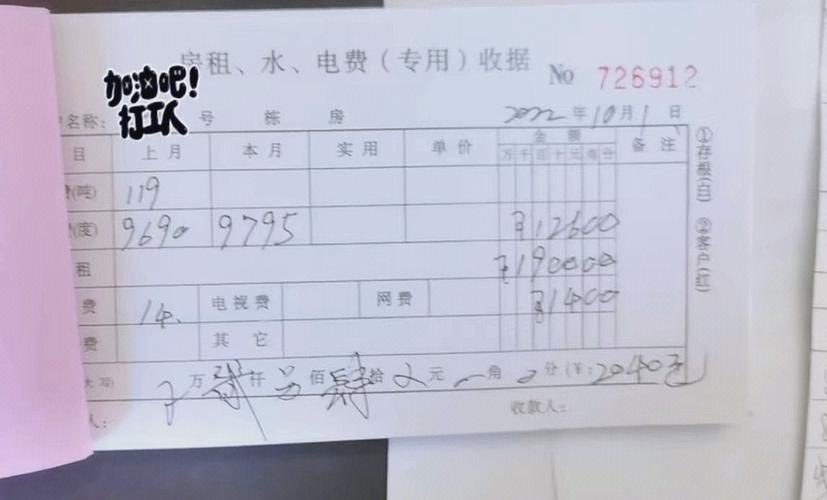 房租、水、电费(专用)收据
No 726912
加油吧!
打工人
户名称: 号 栋 房 2022年10月1日
目 上月 本月 实用 单价 金额 备注
万千百十元角分
(吨) 119
(度) 9690 9795 12600
租 190000
费 14. 电视费 网费 1400
费 其它
大写) 万 贰仟 佰 肆拾 元 角 分(¥:2040元
人: 收款人:
①存根(白) ②客户(红)